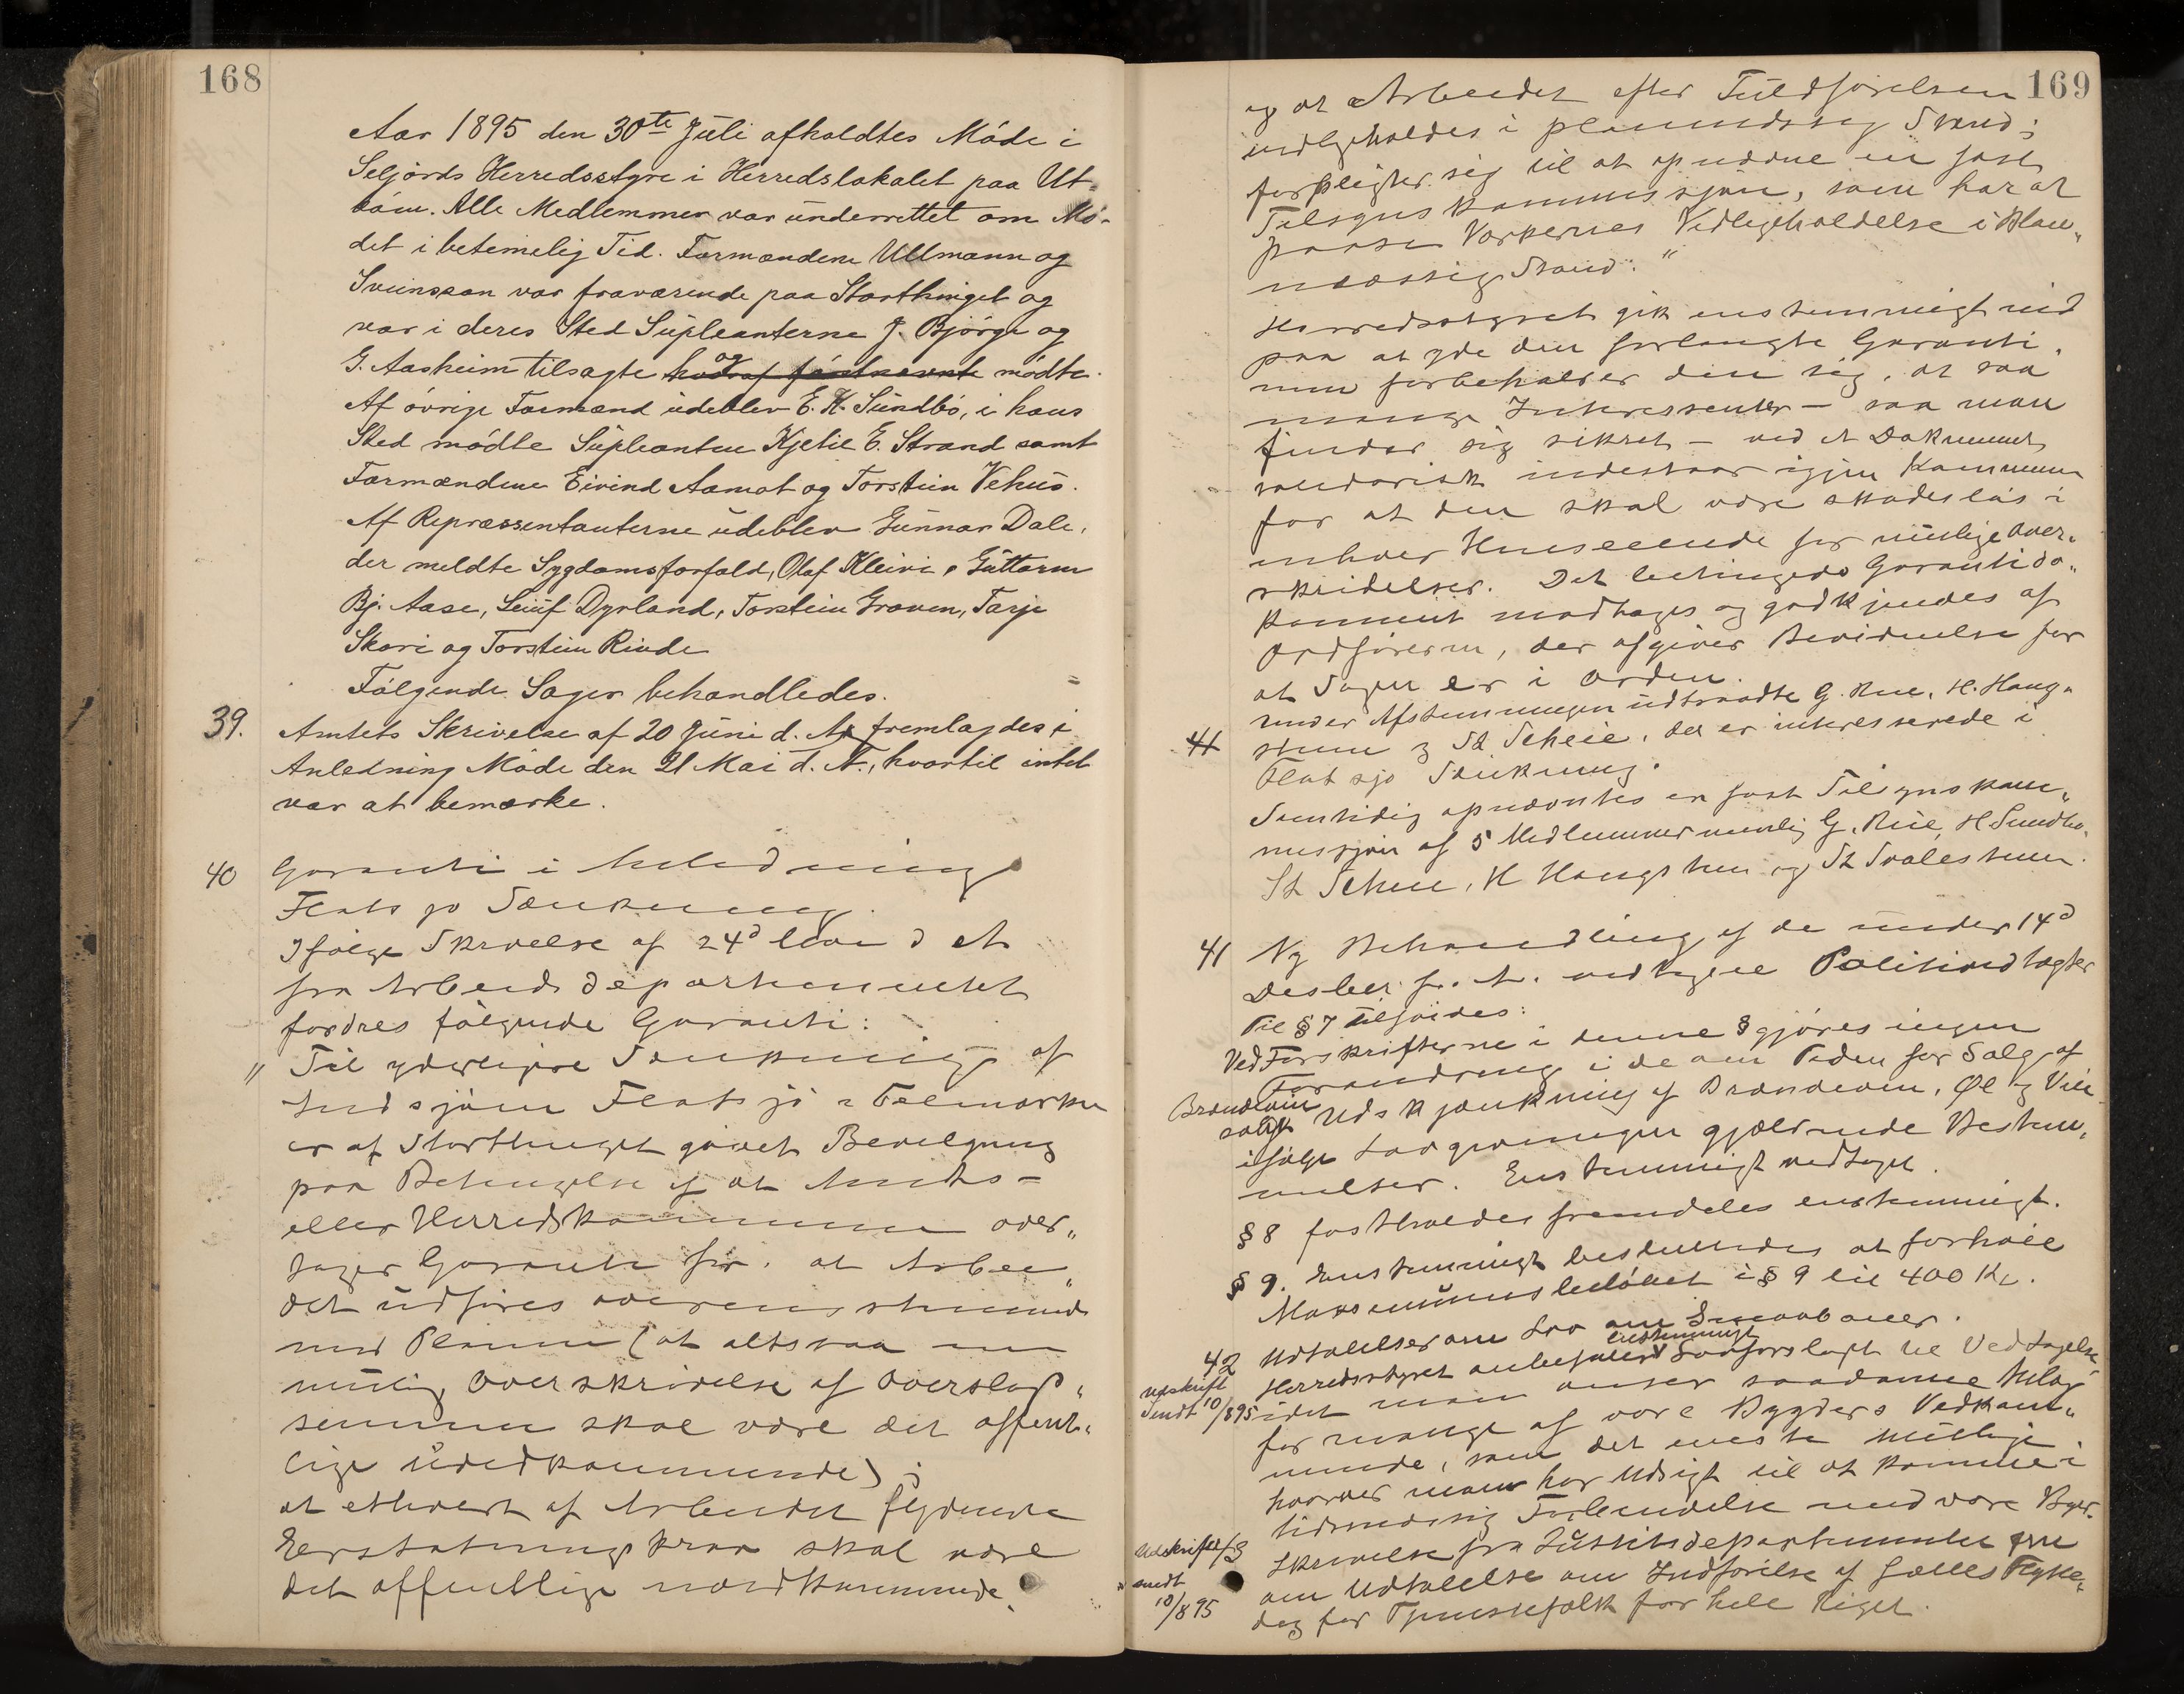 168
Aar 1895 den 30te Juli afholdtes Möde i
Seljords Herredsstyre i Herredslokalet paa Ut-
böen. Alle Medlemmer var underrettet om Mö-
det i betimelig Tid. Formændene Ullmann og
Sveinsson var fraværende paa Storthinget og
var i deres Sted Supleanterne J. Bjørge og
G. Aasheim tilsagte og mödte.
Af övrige Formænd udeblev E. K. Sundbö, i hans
Sted mödte Supleanten Kjetil E. Strand samt
Formændene Eivind Aamot og Torstein Vehus.
Af Repræssentanterne udeblev Gunnar Dale,
der meldte Sygdomsforfald, Olaf Kleivi, Guttorm
Bj. Aase, Leiuf Dyrland, Torstein Graven, Tarje
Skori og Torstein Rinde
Fölgende Sager behandledes.
39. Amtets Skrivelse af 20 Juni d. A. fremlagdes i
Anledning Möde den 21 Mai d. A., hvortil intet
var at bemærke.
40 Garanti i Anledning
Flatsjö Sænkning.
Ifölge Skrivelse af 24d d A
fra Arbeidsdepartementet
fordres fölgende Garanti:
" Til yderligere Sænkning af
Indsjöen Flatsjö i Telemarken
er af Storthinget givet Bevilgning
paa Betingelse af at Amts-
eller Herredskommunen over-
tager Garanti for: at Arbei-
det udföres overensstemmende
med Planen (at altsaa en
mulig Overskridelse af Overslags-
summen skal være det offent-
lige uvedkommende);
at ethvert af Arbeidet flydende
Erstatningskrav skal være
det offentlige uvedkommende,
169
og at Arbeidet efter Fuldförelsen
vedligeholdes i planmæssig Stand;
forpligter sig til at opnævne en fast
Tilsynskommissjon, som har at
paase Værkernes Vedligeholdelse i plan-
mæssig Stand."
Herredsstyret gik enstemmigt ind
paa at yde den forlangte Garanti,
men forbeholder den sig, at saa
mange Interessenter – saa man
finder sig sikret – ved et Dokument
solidarisk indestaar igjen Kommunen
for at den skal være skadeslös i
enhver Henseende for mulige Over-
skridelser. Det betingede Garantido-
kument modtages og godkjendes af
Ordföreren, der afgiver Bevidnelse for
at Sagen er i Orden.
under Afstemningen udtraadte G. Rue, H. Haug-
41 stuen og St Scheie, der er interesserede i
Flatsjö Sænkning.
Samtidig opnævntes en fast Tilsynskom-
missjon af 5 Medlemmer nemlig G. Rue, H Sundbö,
St Scheie, H Haugstuen og St Svalestuen.
41 Ny Behandling af de under 14d
Desber f. A. vedtagne Politivedtægter
Til § 7 tilföides:
Ved Forskrifterne i denne § gjöres ingen
Forandring i de om Tiden for Salg af
Brændevin
salg Udskjænkning af Brændevin, Øl og Vin
ifölge Lovgivningen gjældende Bestem-
melser. Enstemmigt vedtaget.
§ 8 fastholdes fremdeles enstemmigt.
§ 9. Enstemmigt besluttedes at forhöie
Maksimumsbelöbet i § 9 til 400 Kr.
42 Udtalelser om Lov om Smaabaner.
enstemmigt
Herredsstyret anbefaler Lovforslaget til Vedtagelse,
udskrift
sendt 10/895 idet man anser saadanne Anlæg
for mange af vore Bygders Vedkom-
mende, som det eneste mulige
hvorved man har Udsigt til at komme i
tidsmæssig Forbindelse med vore Byer.
Udskrift 43 Skrivelse fra Justitsdepartementet
sendt
10/895 om Udtalelse om Indförelse af fælles Flytte-
dag for Tjenestefolk for hele Riget.